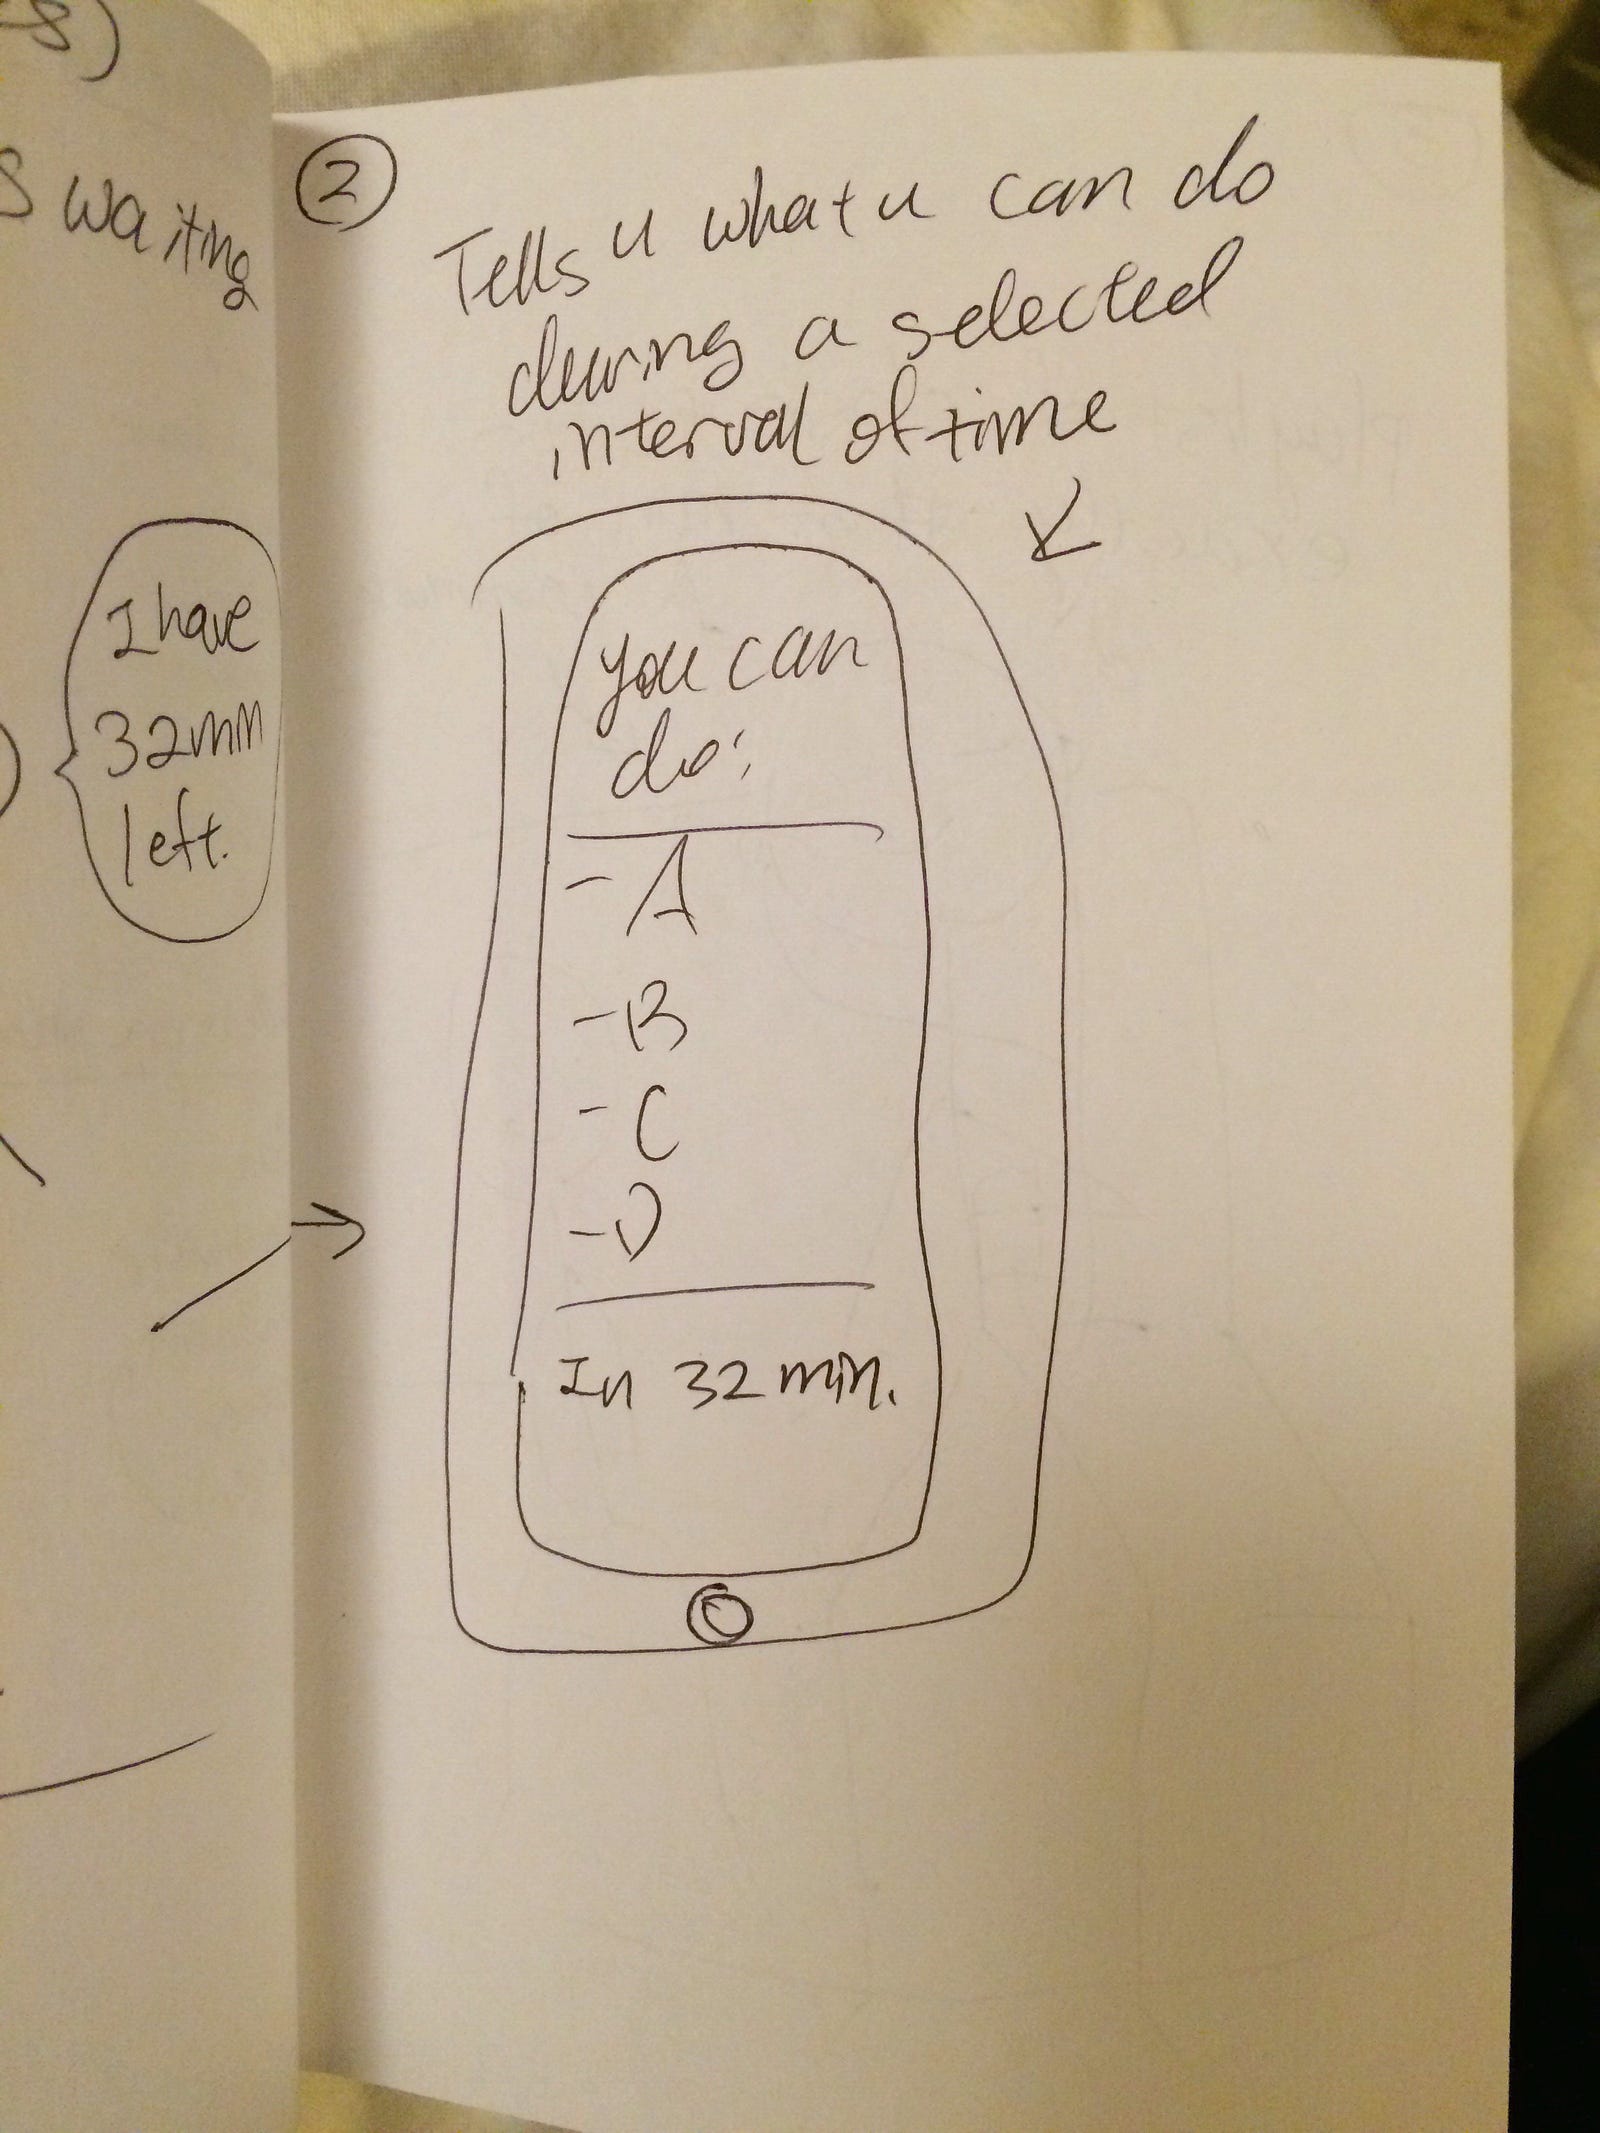 s)
s waiting
I have
32 min
left.
2
Tells u what u can do
during a selected
interval of time
You can
do:
- A
- B
- C
- D
In 32 min.